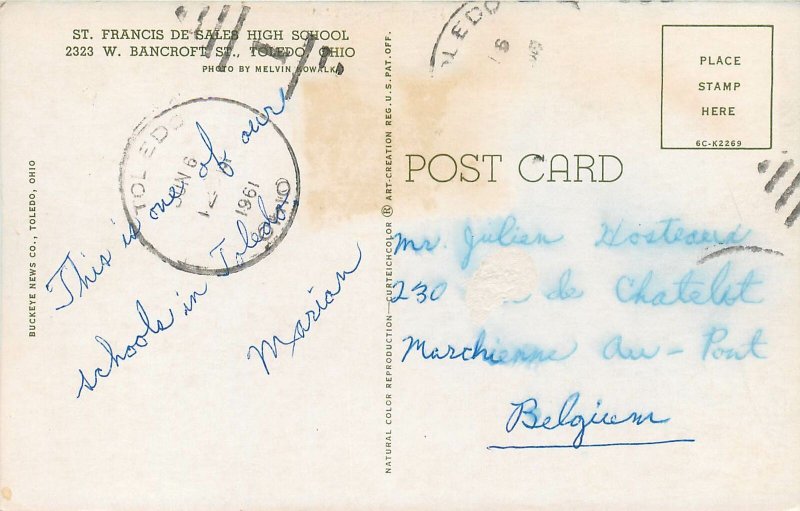 ST. FRANCIS DE SALES HIGH SCHOOL
2323 W. BANCROFT ST., TOLEDO, OHIO
PHOTO BY MELVIN KOWALKA
TOLEDO
JUN 6
12
1961
OHIO
This is one of our
schools in Toledo.
Marian
BUCKEYE NEWS CO., TOLEDO, OHIO
NATURAL COLOR REPRODUCTION—CURTEICHCOLOR ® ART-CREATION REG. U.S. PAT. OFF.
TOLEDO
PLACE
STAMP
HERE
6C-K2269
POST CARD
Mr. Julien
230 de Chatelot
Marchienne Au-Pont
Belgium